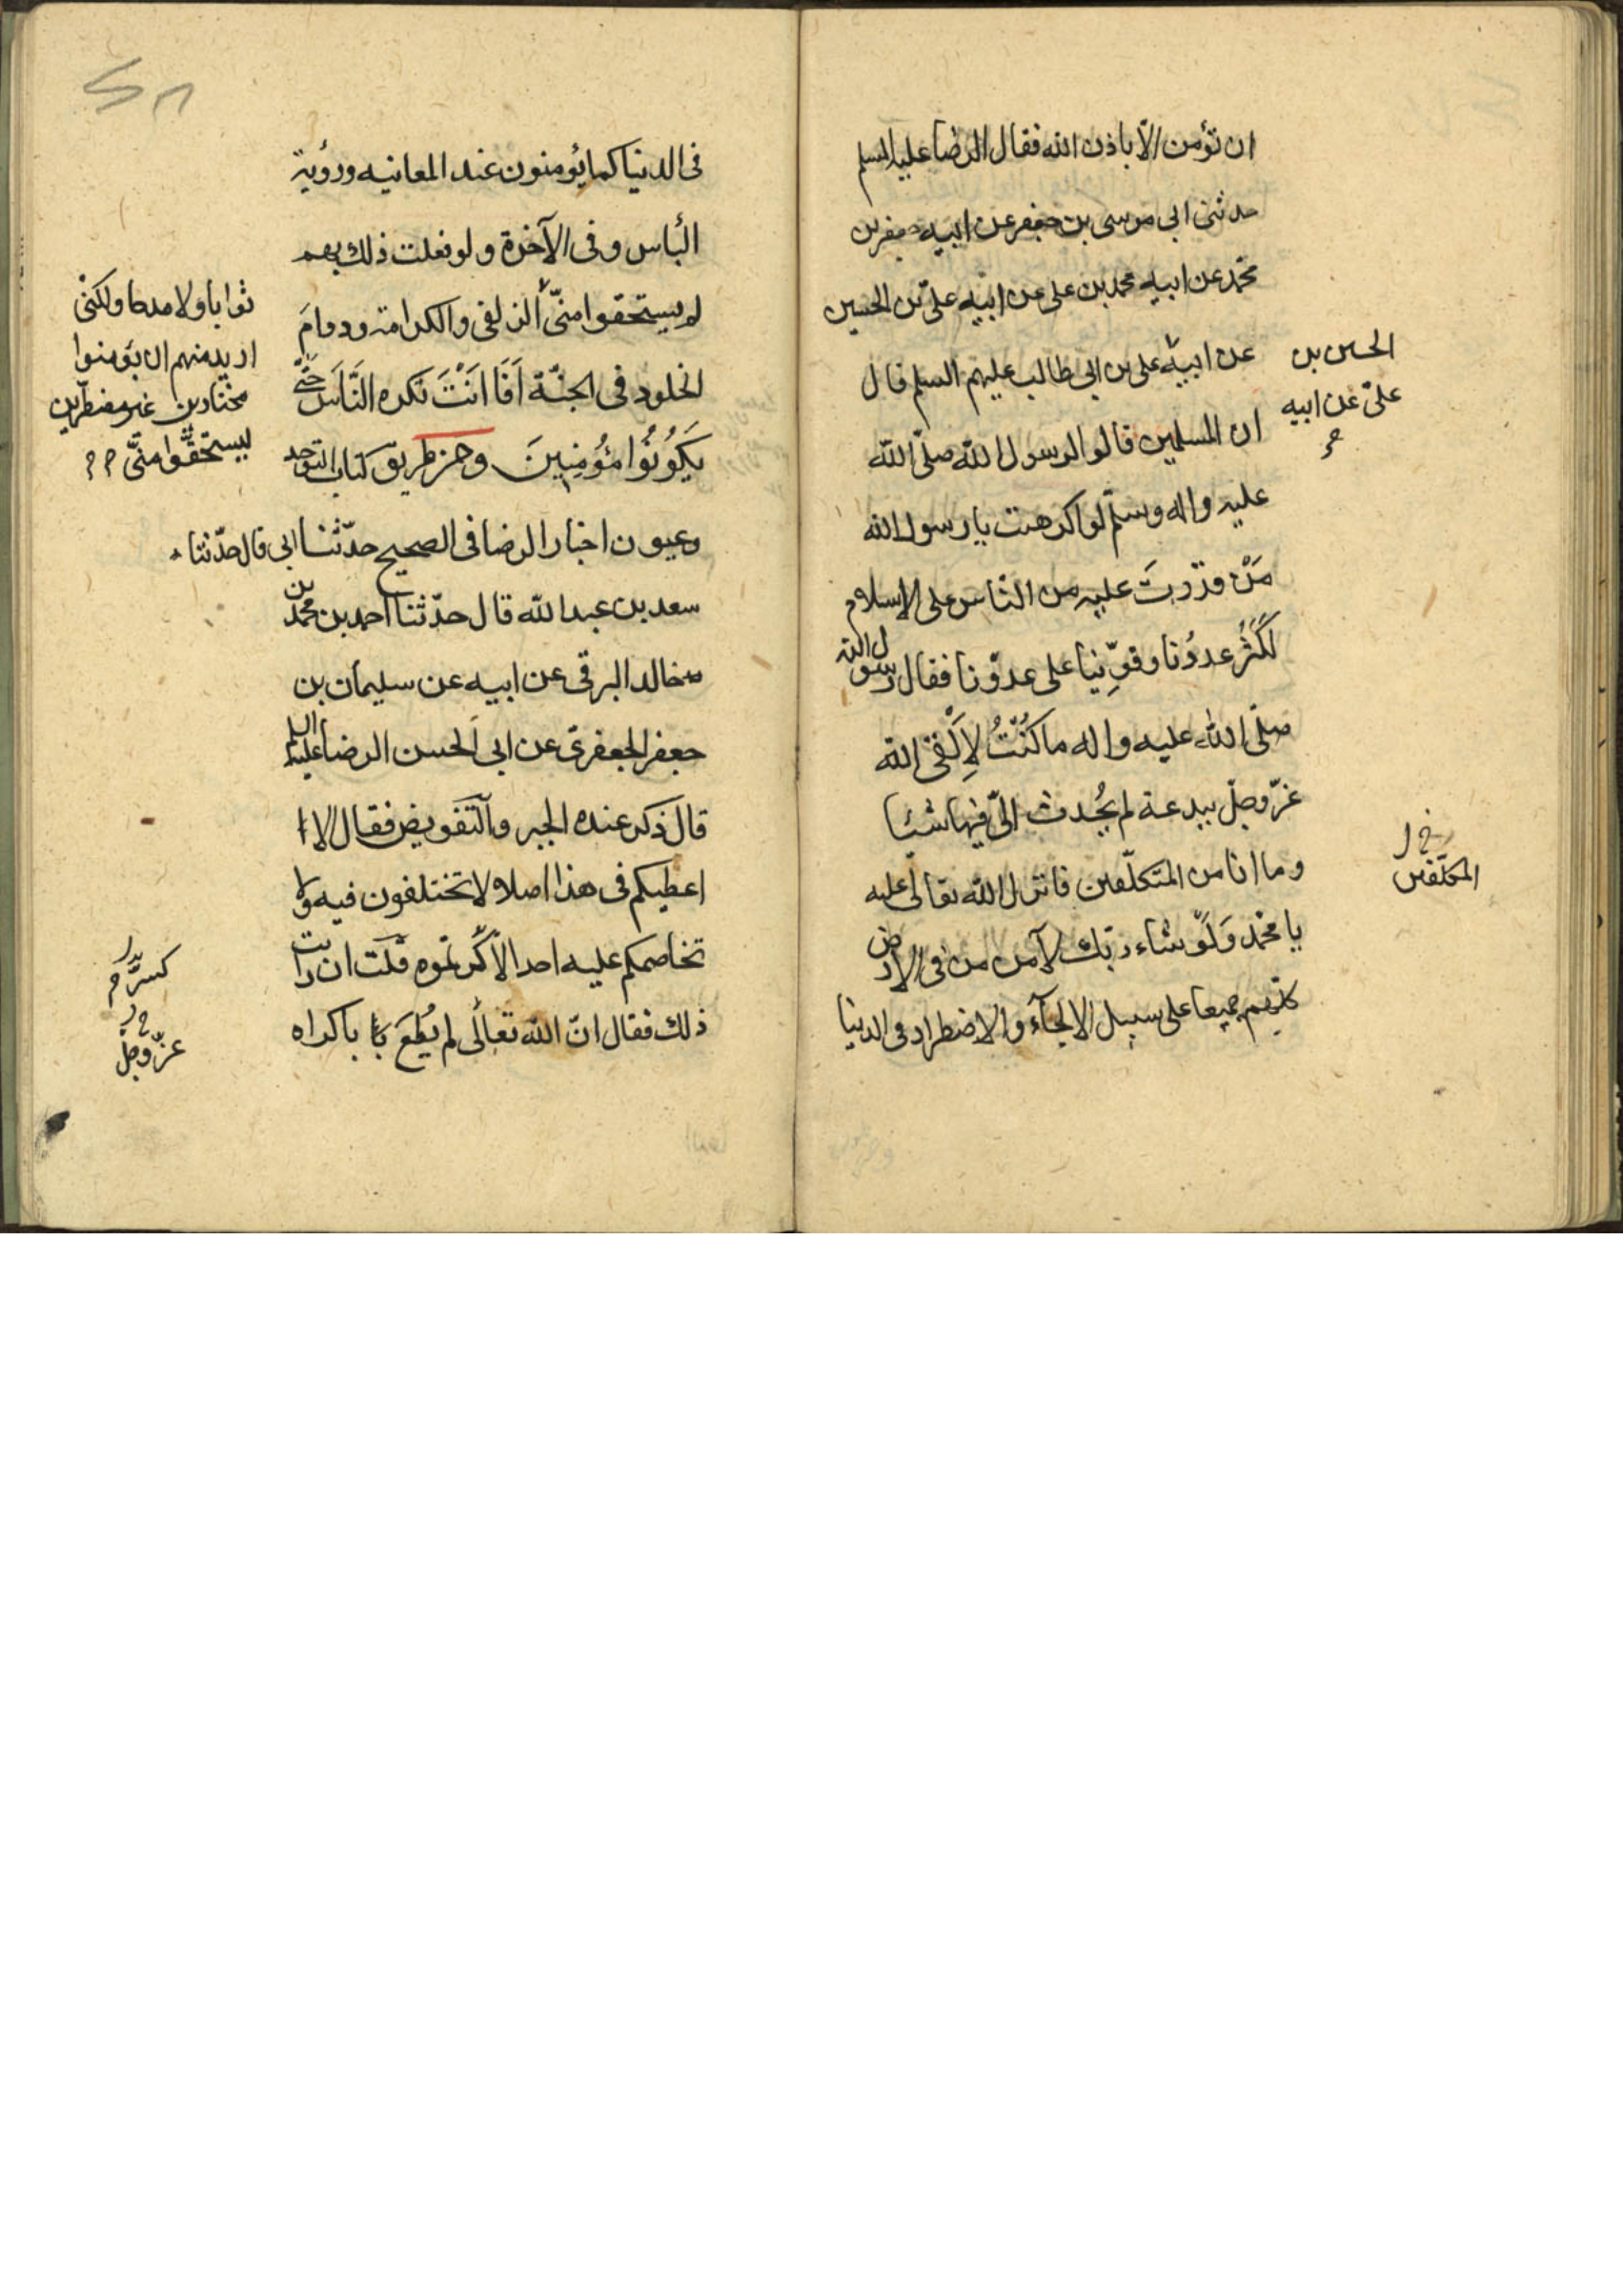 ان تؤمن الّا باذن الله فقال الرضا عليه السلم
حدثنى ابى موسى بن جعفر عن ابيه جعفر بن
محمد عن ابيه محمد بن على عن ابيه علىّ بن الحسين
عن ابيه على بن ابى طالب عليهم السلم قال
الحسين بن
علىّ عن ابيه
ان المسلمين قالوا لرسول الله صلّى الله
عليه واله وسلّم لو اكرهت يا رسول الله
مَنْ قدرتَ عليه من الناس على الاسلام
لكَثُر عددُنا وقوِّينا على عدوّنا فقال رسول الله
صلّى الله عليه واله ما كُنْتُ لِاَلْقَى الله
عزّ وجلّ ببدعة لم يُحدث الىّ فيها شيئا
وما انا من المتكلّفين فانزل الله تعالى عليه
المكلّفين
يا محمّد وَلَوْ شاء ربّك لآمن من فى الارض
كلّهم جميعا على سبيل الالجآء والاضطرار فى الدنيا
فى الدنيا كما يؤمنون عند المعاينه ورؤية
البأس وفى الآخرة ولو فعلت ذلك بهم
لم يستحقوا منّى
ثوابا ولا مدحا ولكنّى
اريد منهم ان يؤمنوا
مختارين غير مضطرّين
ليستحقّوا منّى
الزلفى والكرامة ودوامَ
الخلود فى الجنّة اَفَاَنْتَ تكره النَّاسَ حَتّى
يَكُونُوا مُؤمِنِينَ ومن طريق كتاب التوحيد
وعيون اخبار الرضا فى الصحيح حدّثنا ابى قال حدّثنا
سعد بن عبد الله قال حدّثنا احمد بن محمّد بن
خالد البرقى عن ابيه عن سليمان بن
جعفر الجعفرىّ عن ابى الحسن الرضا عليه السلم
قال ذكر عنده الجبر والتفويض فقال الا
اعطيكم فى هذا اصلا لا تختلفون فيه ولا
تخاصمكم عليه احد الّا كسرتموه قلت ان رايت
ذلك فقال انّ الله تعالى لم يُطَعْ باكراه
عزّ وجلّ